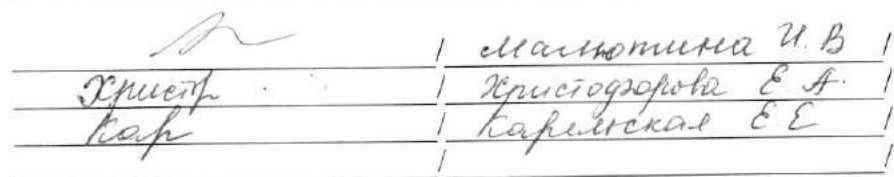 / Малютина И. В /
Христф / Христофорова Е. А. /
Кар / Карельская Е. Е /
/ /